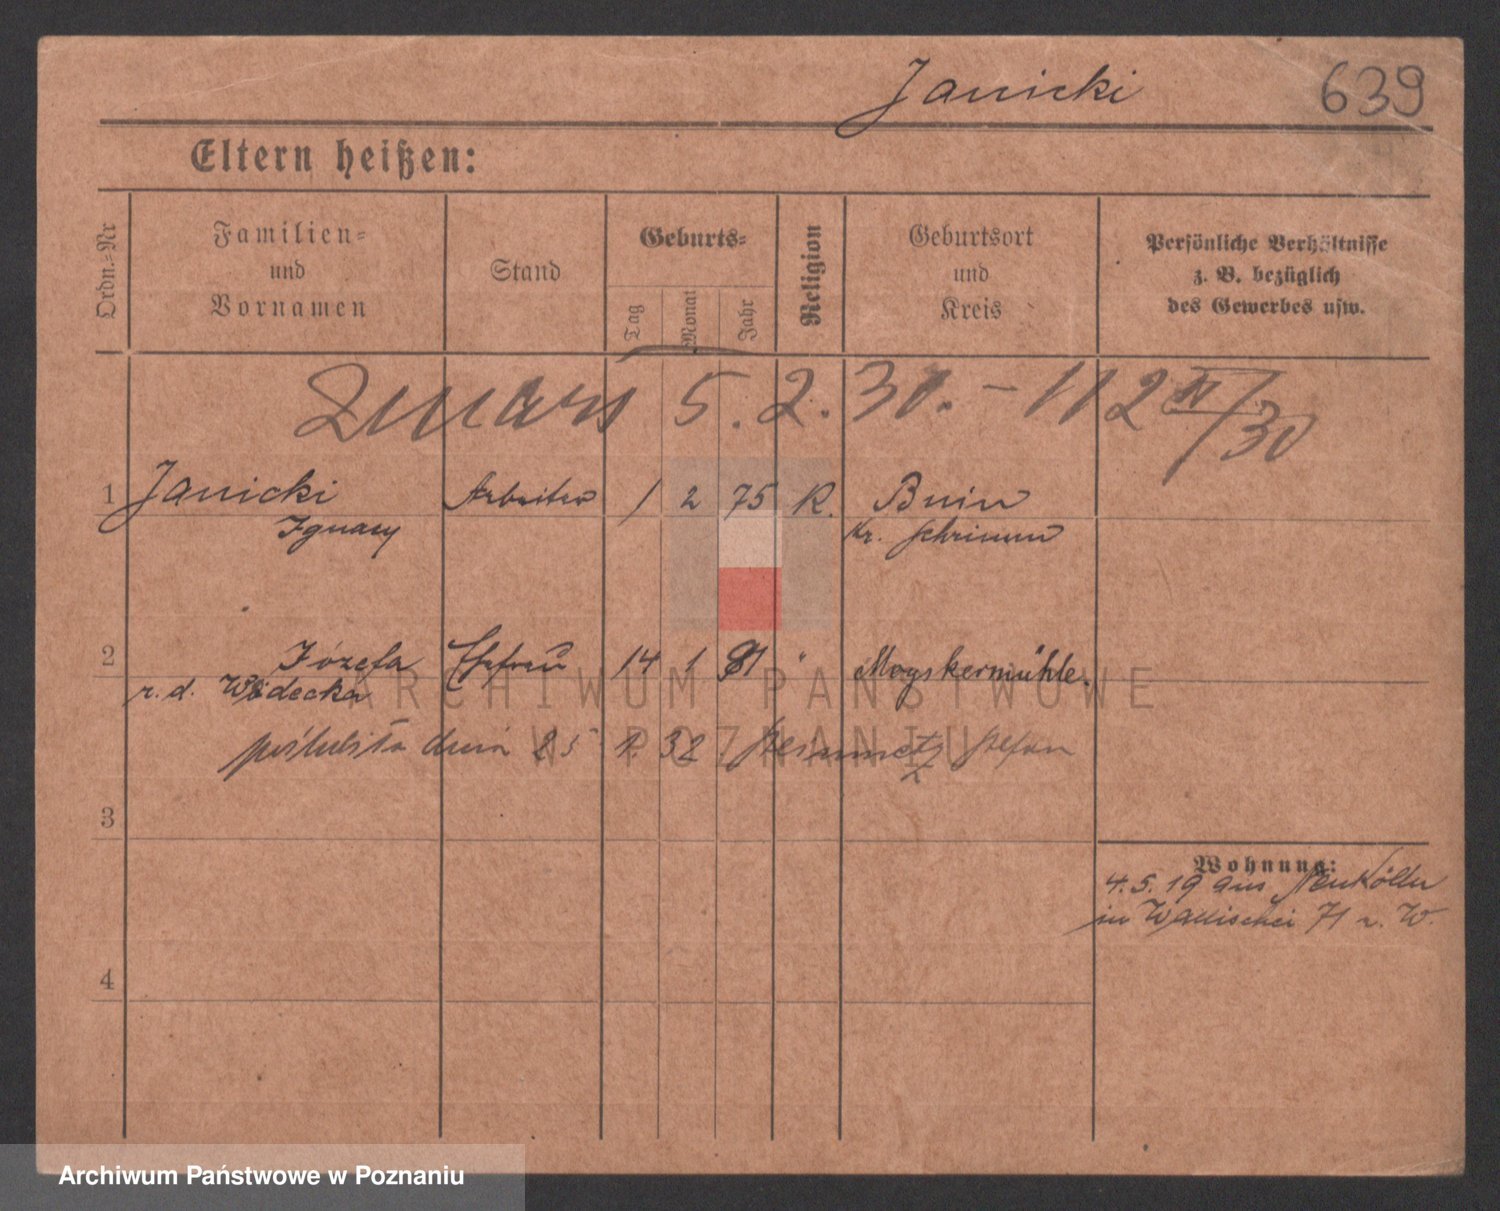 Janicki 639
Eltern heißen:
Ordn.-Nr
Familien-
und
Vornamen
Stand
Geburts-
Tag
Monat
Jahr
Religion
Geburtsort
und
Kreis
Persönliche Verhältnisse
z. B. bezüglich
des Gewerbes usw.
zmarł 5. 2. 30. – 112 /30
1 Janicki Arbeiter 1 2 75 K. Bnin
Ignacy Kr. Schrimm
2 Józefa Ehefrau 14 1 81 " Moyskermühle.
r. d. Wodecka
poślubiła dnia 25 1. 32 Steinmetz Stefan
3
Wohnung:
4. 5. 19 aus Neukölln
in Wallischei 71 r. W.
4
ARCHIWUM PAŃSTWOWE
W POZNANIU
Archiwum Państwowe w Poznaniu